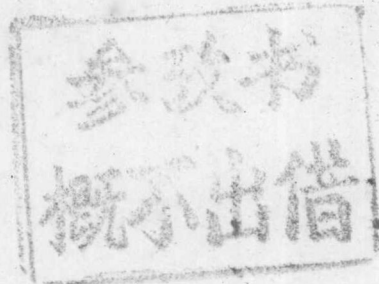 参攷书
概不出借